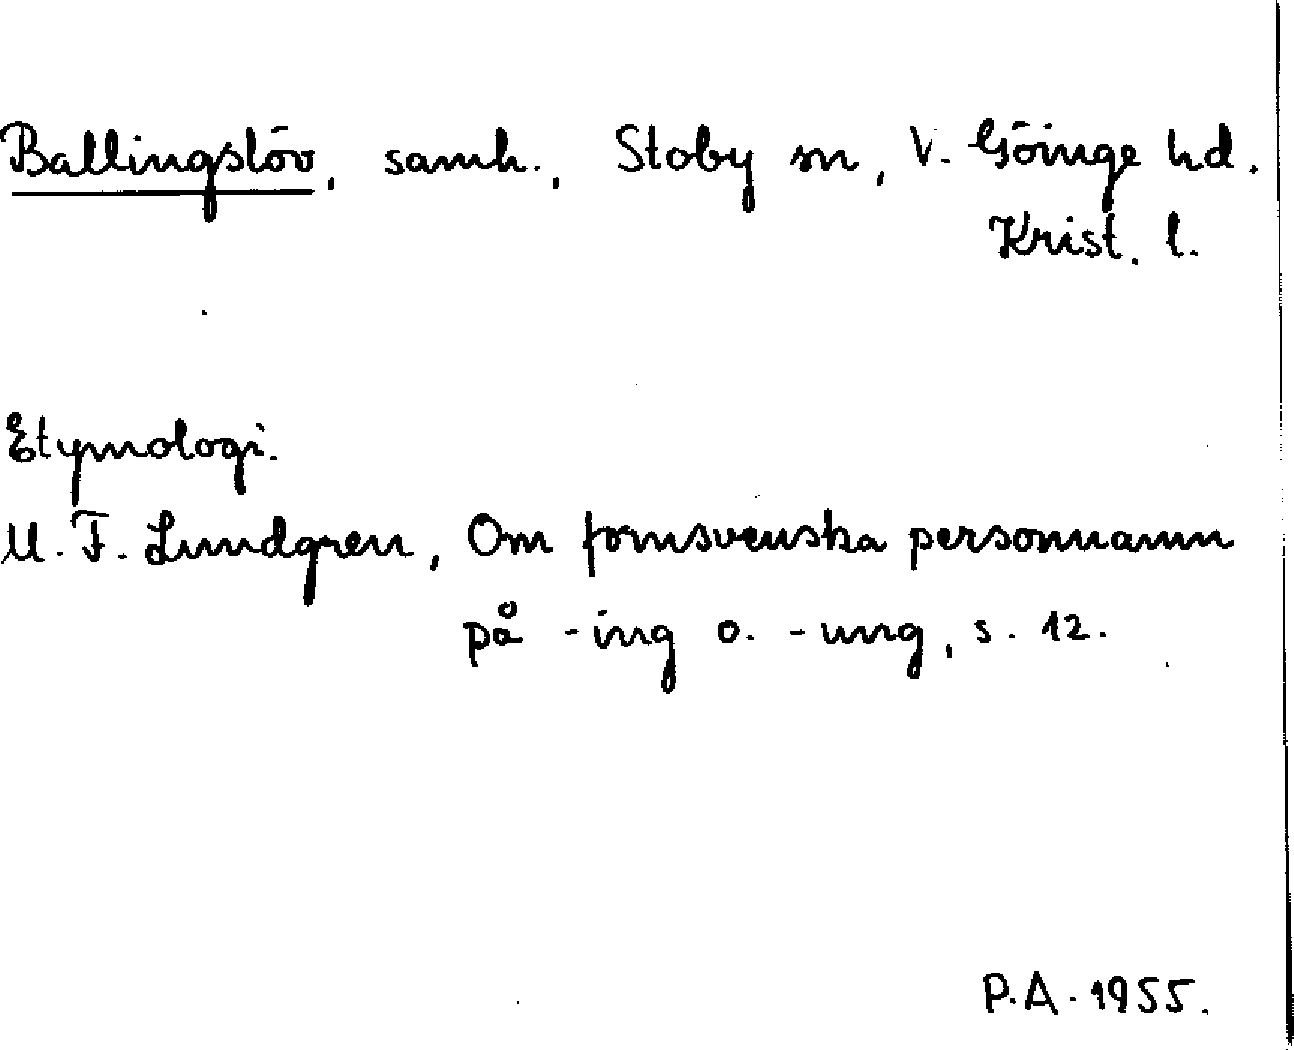 Ballingslöv, samh., Stoby sn, V. Göinge hd.
Krist. l.
Etymologi.
M. F. Lundgren, Om fornsvenska personnamn
på -ing o. -ung, s. 12.
P.A. 1955.